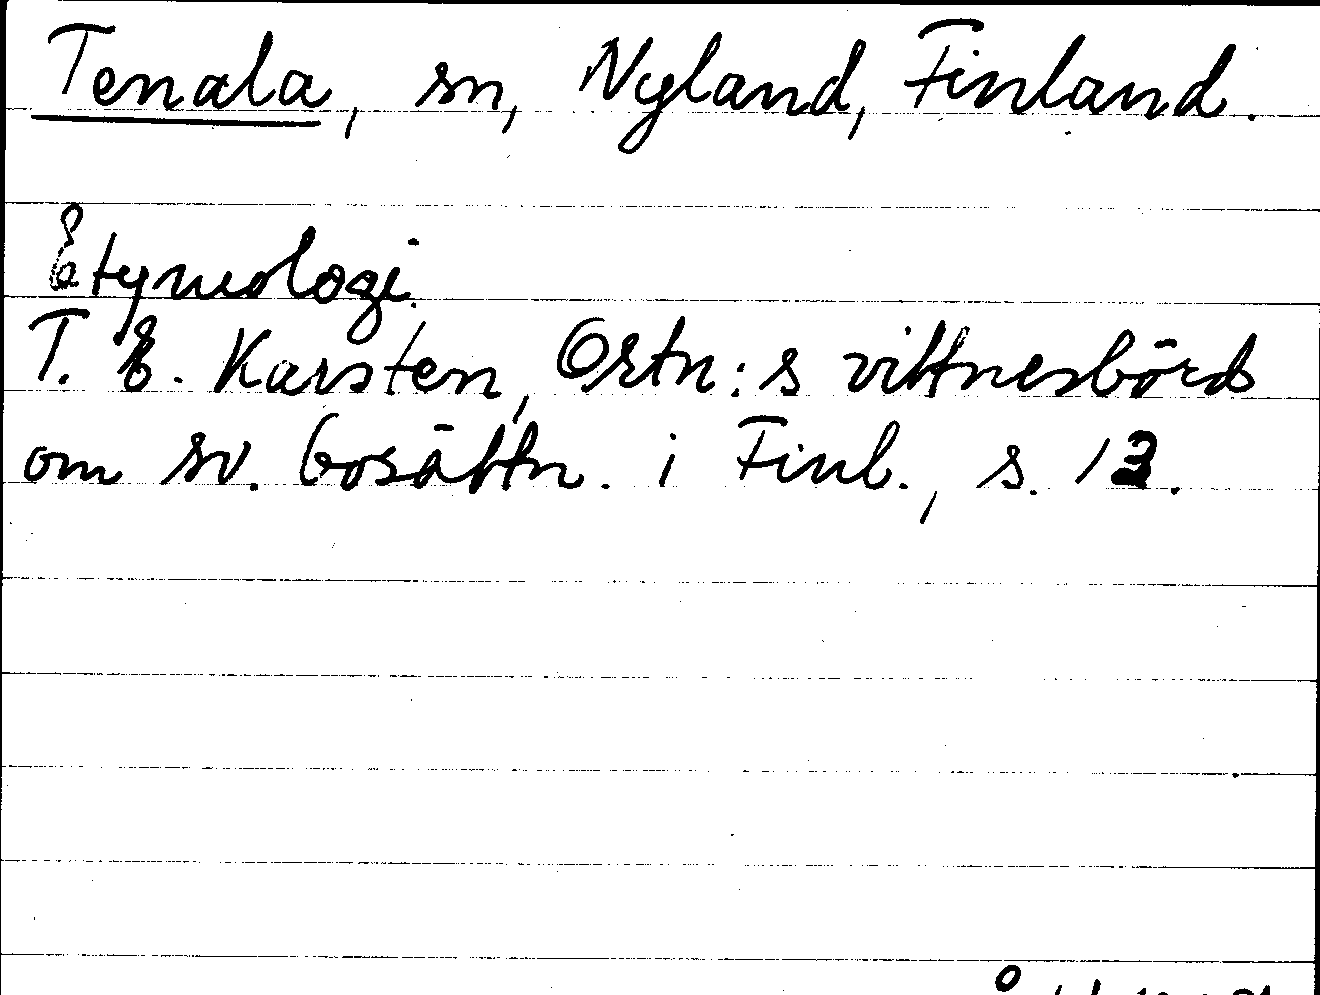 Tenala, sn, Nyland, Finland.
Etymologi.
T. E. Karsten, Ortn:s vittnesbörd
om sv. bosättn. i Finl., s. 13.